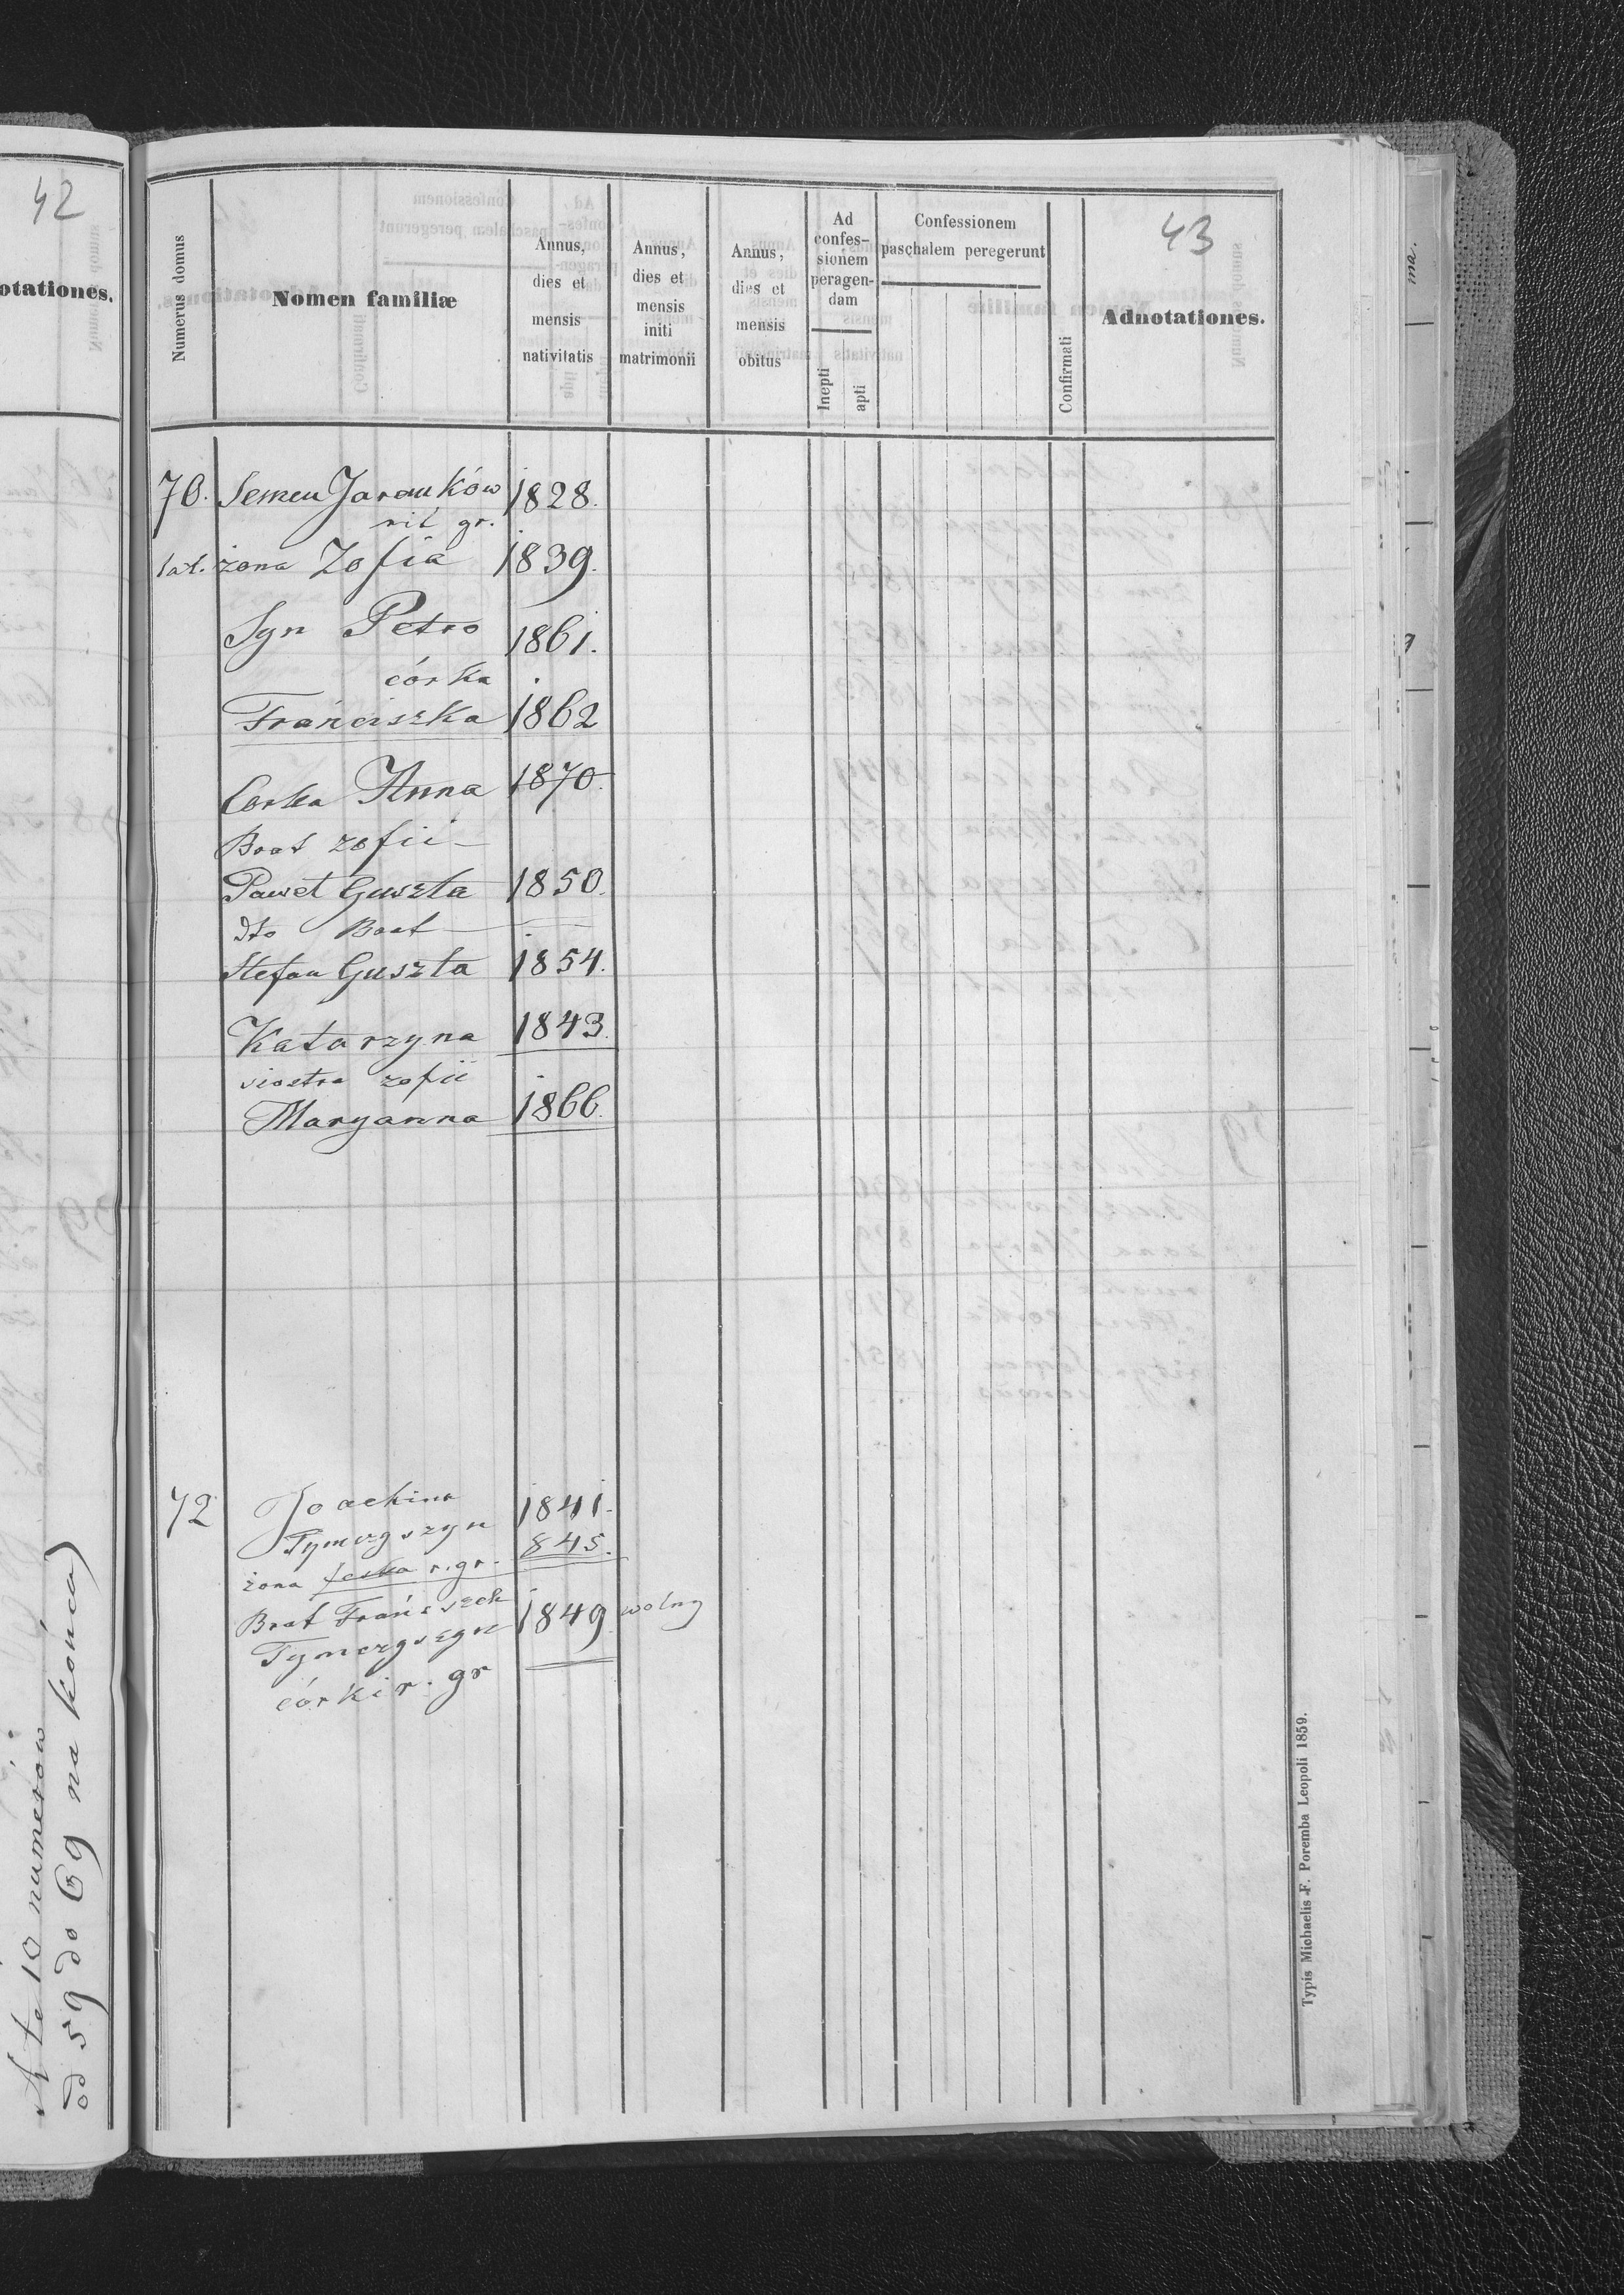 42
otationes.
A te 10 numerów
od 59 do 69 na końcu)
43
Numerus domus
Nomen familiæ
Annus,
dies et
mensis
nativitatis
Annus,
dies et
mensis
initi
matrimonii
Annus,
dies et
mensis
obitus
Ad
confes-
sionem
peragen-
dam
Inepti
apti
Confessionem
paschalem peregerunt
Confirmati
Adnotationes.
70. Semen Jaremków 1828.
rit gr.
lat. żona Zofia 1839.
Syn Petro 1861.
córka
Franciszka 1862
Corka Anna 1870.
Brat zofii
Paweł Guszta 1850.
dto Brat
Stefan Guszta 1854.
Katarzyna 1843.
siostra zofii
Maryanna 1866.
72 Joachim 1841.
Tymczyszyn
żona feska r. gr. 845.
Brat Frańciszek
Tymczyszyn 1849 wolny
córki r. gr
Typis Michaelis F. Poremba Leopoli 1859.